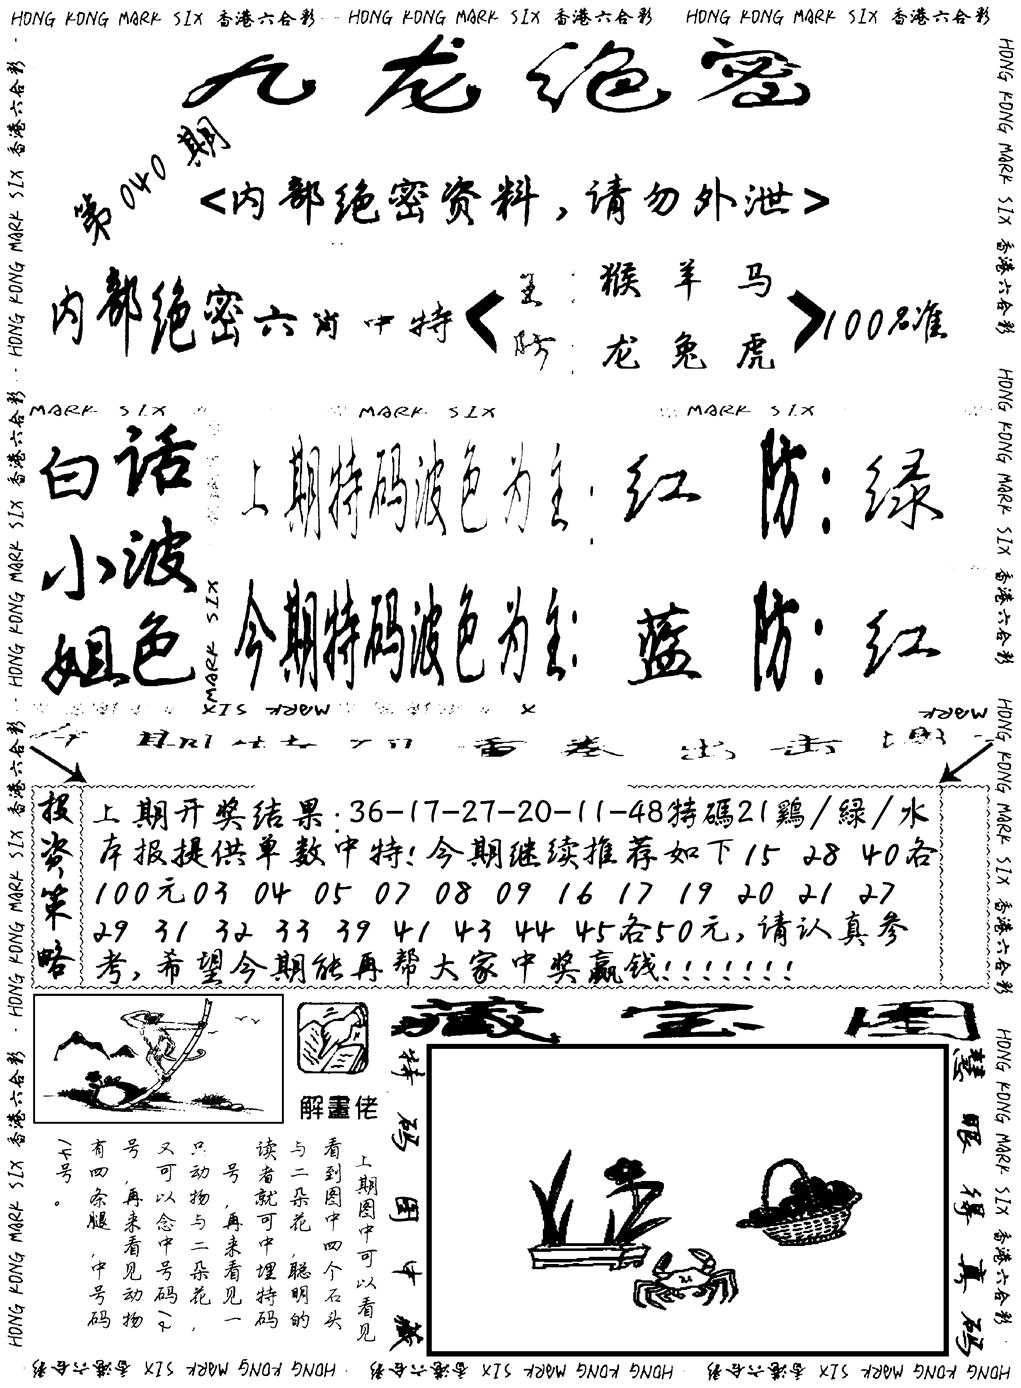 HONG KONG MARK SIX 香港六合彩 HONG KONG MARK SIX 香港六合彩 HONG KONG MARK SIX 香港六合彩
九龙绝密
第040期
<内部绝密资料，请勿外泄>
内部绝密六肖中特
主 : 猴 羊 马
防 : 龙 兔 虎
100%准
MARK SIX MARK SIX MARK SIX
白话小波姐色
上期特码波色为主: 红 防: 绿
今期特码波色为主: 蓝 防: 红
MARK SIX
投资策略
上期开奖结果:36-17-27-20-11-48特碼21鷄/緑/水
本报提供单数中特!今期继续推荐如下15 28 40各
100元03 04 05 07 08 09 16 17 19 20 21 27
29 31 32 33 39 41 43 44 45各50元,请认真参
考,希望今期能再帮大家中奖赢钱!!!!!!!
解畫佬
上期图中可以看见
看到图中四个石头
与二朵花,聪明的
读者就可中埋特码
号,再来看见一
只动物与二朵花,
又可以念中号码12
号,再来看见动物
有四条腿,中号码
14号。
藏宝图
特码图中藏
慧眼得真码
HONG KONG MARK SIX 香港六合彩 HONG KONG MARK SIX 香港六合彩 HONG KONG MARK SIX 香港六合彩